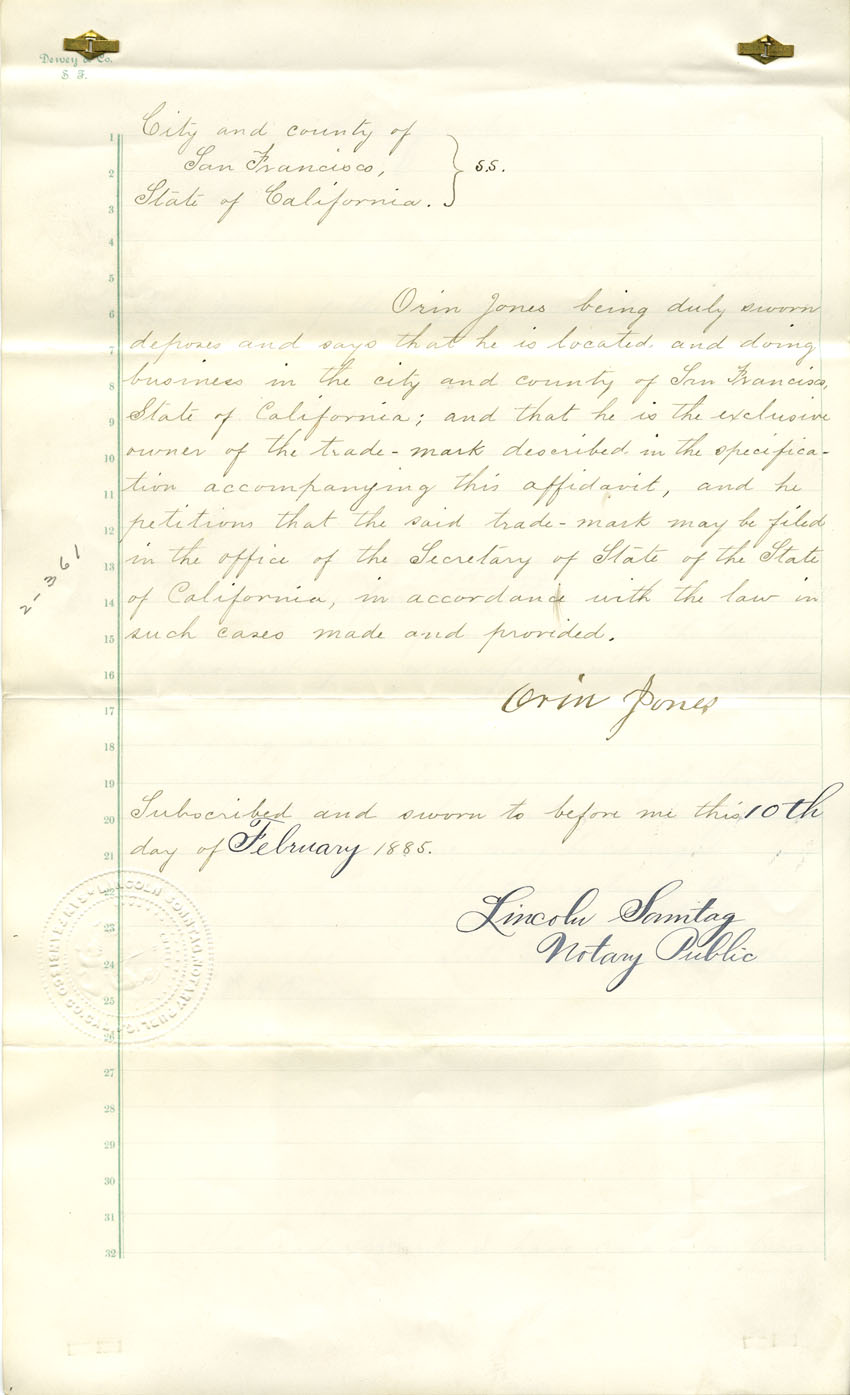 Dewey & Co.
S. F.
City and county of
San Francisco,
State of California.
} s.s.
Orin Jones being duly sworn
deposes and says that he is located and doing
business in the city and county of San Francisco,
State of California; and that he is the exclusive
owner of the trade-mark described in the specifica-
tion accompanying this affidavit, and he
petitions that the said trade-mark may be filed
in the office of the Secretary of State of the State
of California, in accordance with the law in
such cases made and provided.
Orin Jones
Subscribed and sworn to before me this 10th
day of February 1885.
Lincoln Sonntag
Notary Public
LINCOLN SONNTAG, NOTARY PUBLIC
1
2
3
4
5
6
7
8
9
10
11
12
13
14
15
16
17
18
19
20
21
22
23
24
25
26
27
28
29
30
31
32